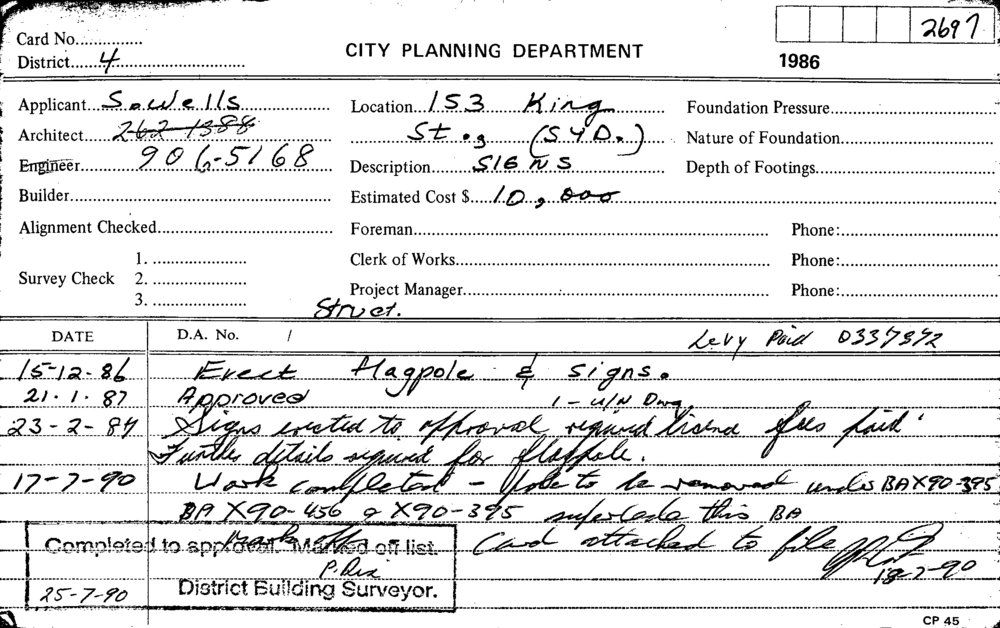 Card No...............
District......4.................................
CITY PLANNING DEPARTMENT
2697
1986
Applicant...S. Wells...................
Architect...262-1388
Engineer...906-5168
Builder...............................................
Alignment Checked...............................
Survey Check
1. ......................
2. ......................
3. ......................
Location...153 King
St., (SYD.)
Description...SIGNS
Estimated Cost $...10,000
Foreman...............................................
Clerk of Works...............................................
Project Manager...............................................
Struct.
Foundation Pressure...............................
Nature of Foundation...............................
Depth of Footings...............................
Phone:...............................
Phone:...............................
Phone:...............................
DATE
D.A. No. /
Levy Paid 0337872
15-12-86 Erect flagpole & signs.
21.1.87 Approved 1-U/N Dwg
23-2-87 Signs erected to approval required fees paid.
Further details required for flagpole.
17-7-90 Work completed - Pole to be removed under BAX90-395
BA X90-456 & X90-395 supercede this BA
mark off Card attached to file
18-7-90
Completed to approval. Marked off list.
P. Dix
25-7-90 District Building Surveyor.
CP 45